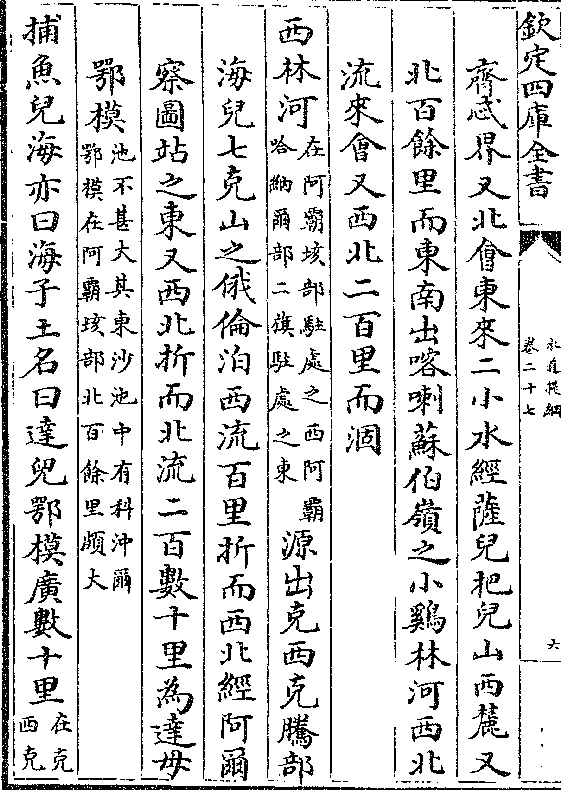 欽定四庫全書
水道提綱
卷二十七
六
齊忒界又北會東來二小水經薩兒把兒山西麓又
北百餘里而東南出喀喇蘇伯嶺之小鷄林河西北
流來會又西北二百里而涸
西林河
在阿霸垓部駐處之西阿霸
哈納爾部二旗駐處之東
源出克西克騰部
海兒七克山之俄倫泊西流百里折而西北經阿爾
察圖站之東又西北折而北流二百數十里為達母
鄂模
池不甚大其東沙池中有科沖爾
鄂模在阿霸垓部北百餘里頗大
捕魚兒海亦曰海子土名曰達兒鄂模廣數十里
在克
西克